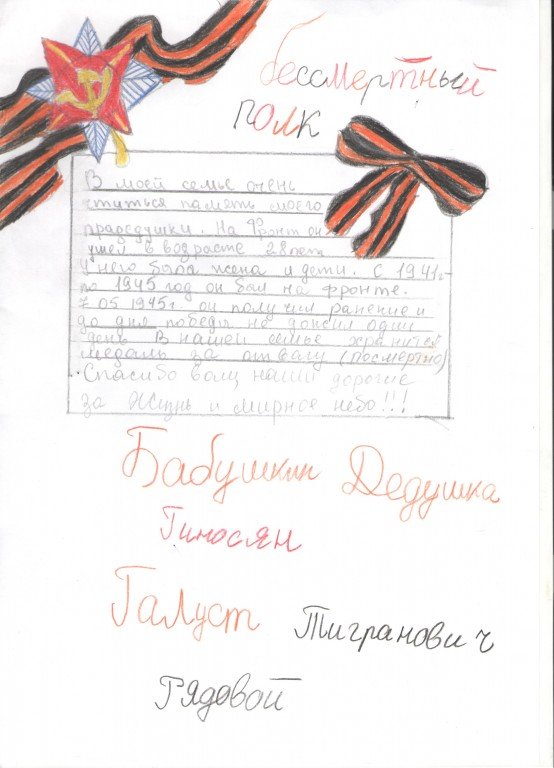 бессмертный
полк
В моей семье очень
чтиться память моего
прадедушки. На Фронт он
ушел в возрасте 28 лет
У него была жена и дети. С 1941г-
по 1945 год он был на фронте.
7 05 1945г. он получил ранение и
до дня победы не дожил один
день В нашей семье хранится
медаль за отвагу (посмертно)
Спасибо вам наши дорогие
за Жизнь и мирное небо!!!
Бабушкин Дедушка
Гиносян
Галуст Тигранович
Рядовой